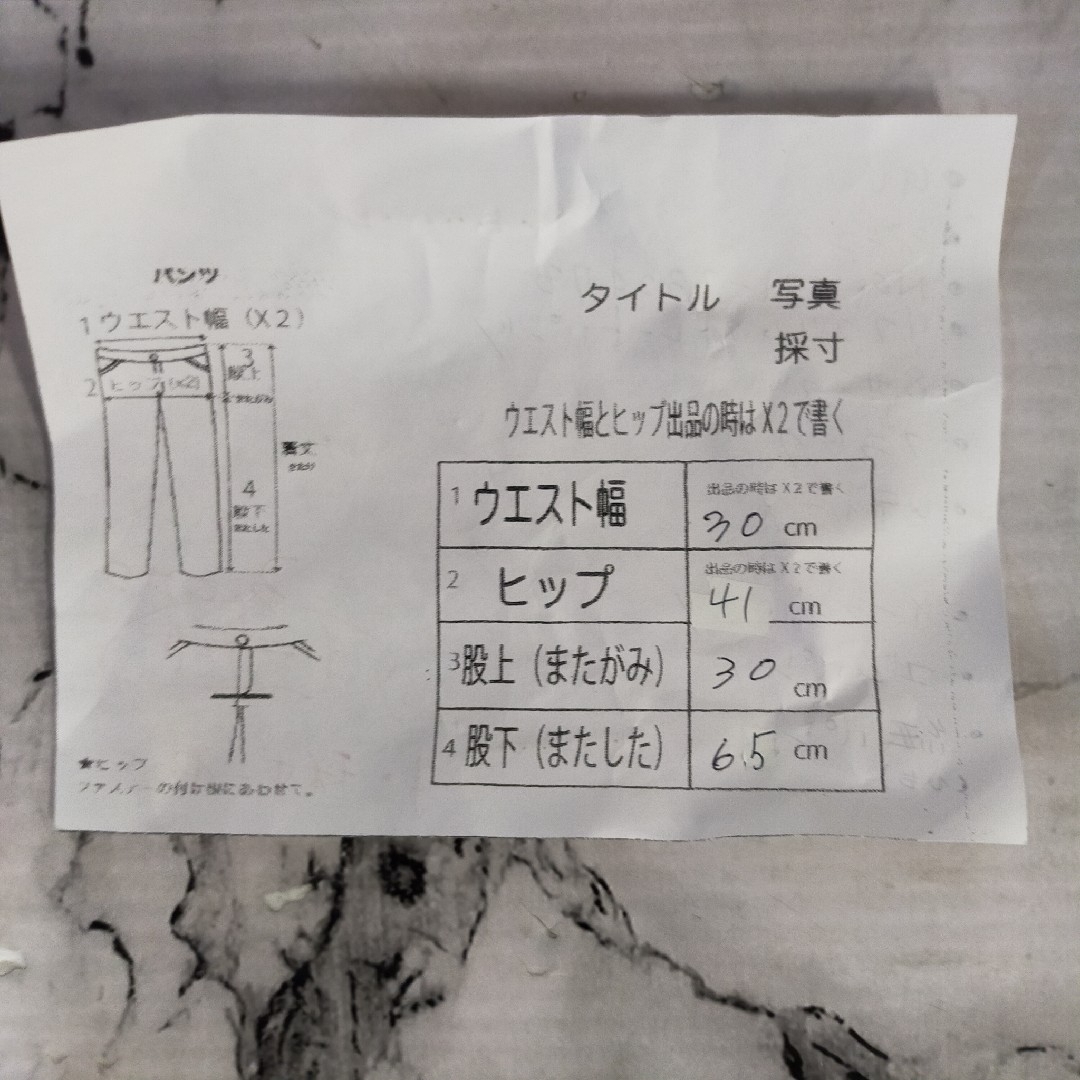 パンツ
1 ウエスト幅（X2）
2 ヒップ(x2)
3
股上
またがみ
着丈
きたけ
4
股下
またした
★ヒップ
ファスナーの付け根にあわせて。
タイトル 写真
採寸
ウエスト幅とヒップ出品の時はX2で書く
1 ウエスト幅 出品の時はX2で書く
30 cm
2 ヒップ 出品の時はX2で書く
41 cm
3 股上（またがみ） 30 cm
4 股下（またした） 6.5 cm